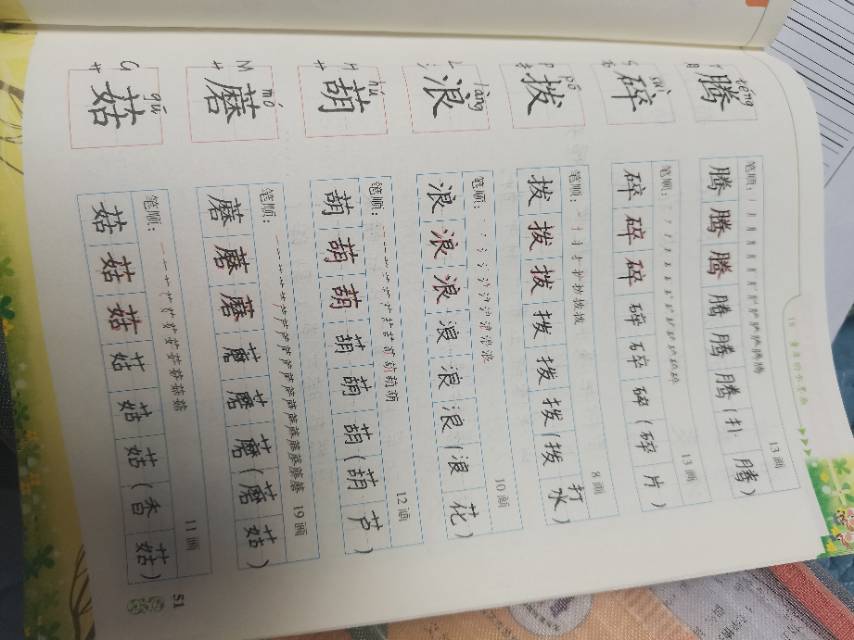 18 童年的水墨画
téng 笔顺： 13画
腾 腾 腾 腾 腾 腾 腾 (扑 腾)
suì 笔顺： 13画
S 石
碎 碎 碎 碎 碎 碎 碎 (碎 片)
pō 笔顺： 8画
P 扌
拨 拨 拨 拨 拨 拨 拨 (拨 打水)
làng 笔顺： 10画
L 氵
浪 浪 浪 浪 浪 浪 浪 (浪 花)
hú 笔顺： 12画
H 艹
葫 葫 葫 葫 葫 葫 葫 (葫 芦)
mó 笔顺： 19画
M 艹
蘑 蘑 蘑 蘑 蘑 蘑 蘑 (蘑 菇)
gū 笔顺： 11画
G 艹
菇 菇 菇 菇 菇 菇 菇 (香 菇)
51